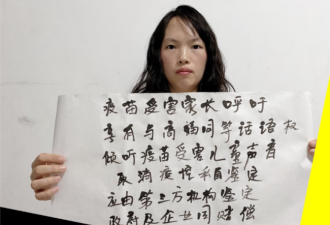 疫苗受害家长呼吁
享有与高福同等话语权
倾听疫苗受害儿童声音
取消疾控自鉴定
应由第三方机构鉴定
政府及企业同赔偿